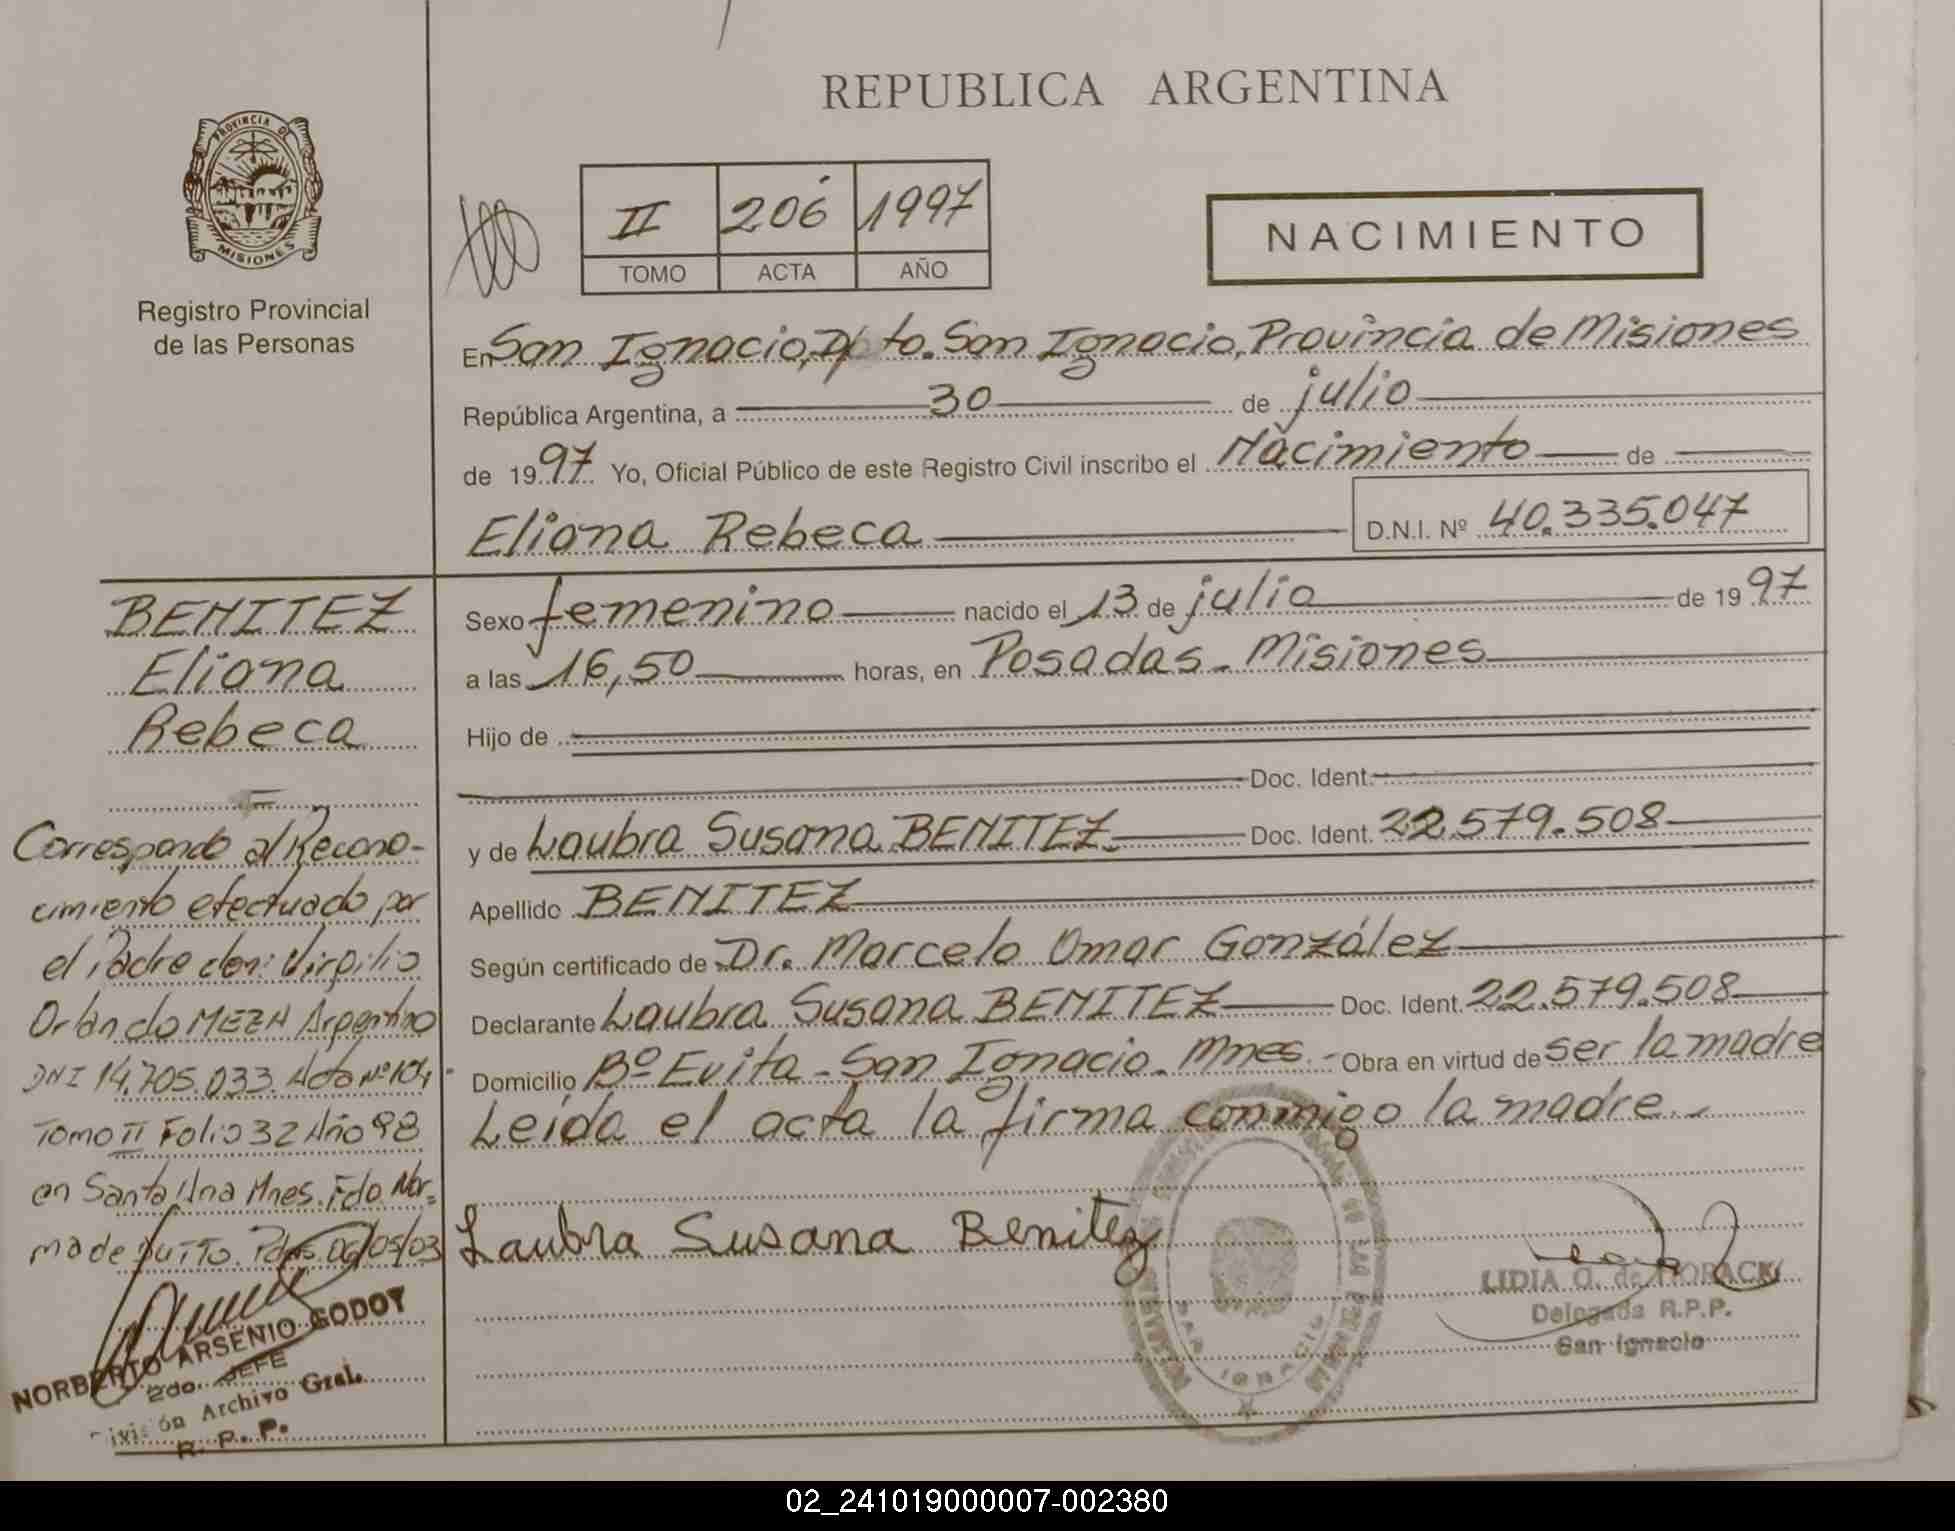 REPUBLICA ARGENTINA
PROVINCIA DE
MISIONES
Registro Provincial
de las Personas
II 206 1997
TOMO ACTA AÑO
NACIMIENTO
En San Ignacio, Dpto. San Ignacio, Provincia de Misiones
República Argentina, a 30 de julio
de 1997 Yo, Oficial Público de este Registro Civil inscribo el Nacimiento de
Eliana Rebeca D.N.I. Nº 40.335.047
Sexo femenino nacido el 13 de julio de 1997
a las 16,50 horas, en Posadas - Misiones
Hijo de
Doc. Ident.
y de Laubra Susana BENITEZ Doc. Ident. 22.579.508
Apellido BENITEZ
Según certificado de Dr. Marcelo Omar González
Declarante Laubra Susana BENITEZ Doc. Ident. 22.579.508
Domicilio Bº Evita - San Ignacio - Mnes. - Obra en virtud de ser la madre
Leída el acta la firma conmigo la madre.-
Laubra Susana Benitez
LIDIA G. de
Delegada R.P.P.
San Ignacio
SAN IGNACIO
BENITEZ
Eliana
Rebeca
Corresponde al Recono-
cimiento efectuado por
el Padre don: Virgilio
Orlando MEZA Argentino
DNI 14.705.033. Acta Nº 104
Tomo II Folio 32 Año 98
en Santa Ana Mnes. Fdo Nor-
ma de Pdas. 06/05/03
NORBERTO ARSENIO GODOY
2do. JEFE
División Archivo Gral.
R. P. P.
02_241019000007-002380